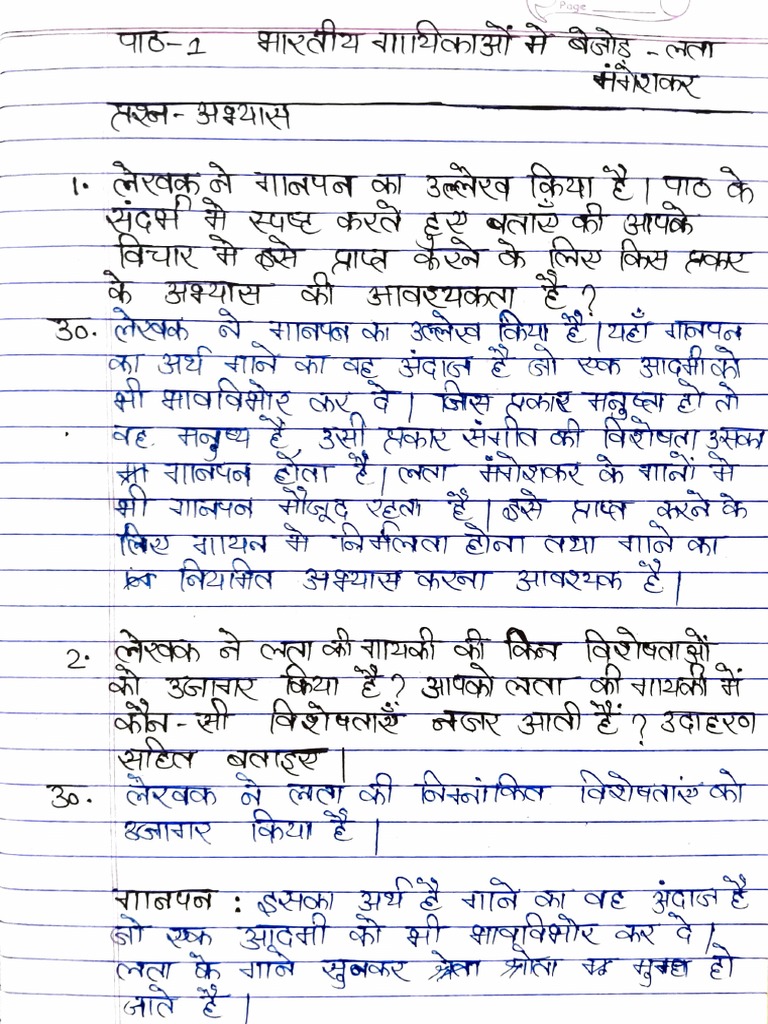 Page
पाठ-1 भारतीय गायिकाओं में बेजोड़ - लता
मंगेशकर
प्रश्न-अभ्यास
1. लेखक ने गानपन का उल्लेख किया है। पाठ के
संदर्भ में स्पष्ट करते हुए बताएँ की आपके
विचार में इसे प्राप्त करने के लिए किस प्रकार
के अभ्यास की आवश्यकता है?
उ०. लेखक ने गानपन का उल्लेख किया है। यहाँ गानपन
का अर्थ गाने का वह अंदाज है जो एक आदमी को
भी भावविभोर कर दे। जिस प्रकार मनुष्यता हो तो
वह मनुष्य है उसी प्रकार संगीत की विशेषता उसका
गानपन होता है। लता मंगेशकर के गानों में
भी गानपन मौजूद रहता है। इसे प्राप्त करने के
लिए गायन मे निर्मलता होना तथा गाने का
नियमित अभ्यास करना आवश्यक है।
2. लेखक ने लता की गायकी की किन विशेषताओं
को उजागर किया है? आपको लता की गायकी में
कौन-सी विशेषताएँ नजर आती हैं? उदाहरण
सहित बताइए।
उ०. लेखक ने लता की निम्नांकित विशेषताएं को
उजागर किया है।
गानपन : इसका अर्थ है गाने का वह अंदाज है
जो एक आदमी को भी भावविभोर कर दे।
लता के गाने सुनकर श्रोता मुग्ध हो
जाते है।